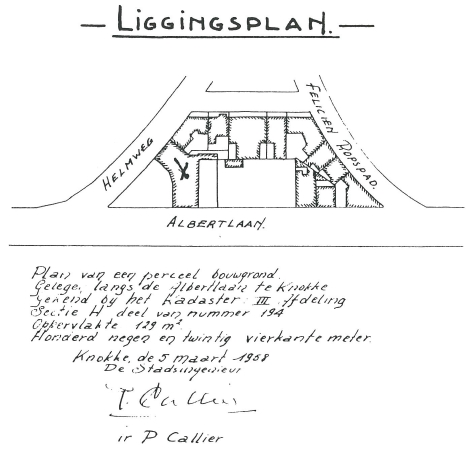 — LIGGINGSPLAN. —
FELICIEN ROPSPAD.
HELMWEG
ALBERTLAAN.
Plan van een perceel bouwgrond.
Gelegen langs de Albertlaan te Knokke
Gekend bij het Kadaster: III Afdeling
Sectie H deel van nummer 194
Oppervlakte 129 m²
Honderd negen en twintig vierkante meter.
Knokke, de 5 maart 1958
De Stadsingenieur
P. Callier
ir P Callier